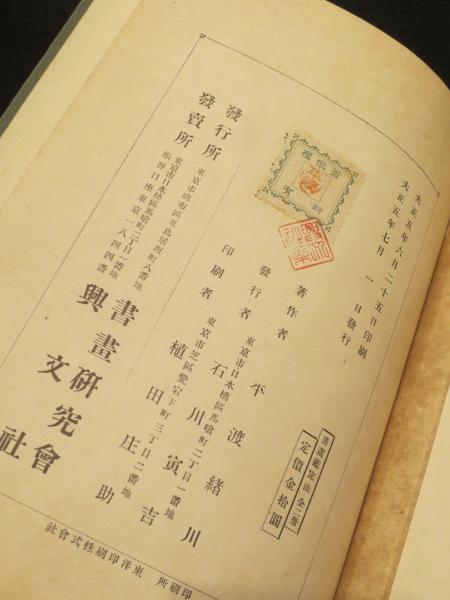 大正五年六月二十五日印刷
大正五年七月一日發行
書畫鑑定法 全二册
定價金拾圓
著作者 平渡緒川
東京市日本橋區馬喰町二丁目一番地
發行者 石川寅吉
東京市芝區愛宕下町三丁目二番地
印刷者 植田庄助
發行所 東京市麻布區東鳥居坂町八番地 書畫研究會
發賣所 東京市日本橋區馬喰町二丁目一番地 興文社
振替口座東京一八四四番
印刷所 東洋印刷株式會社